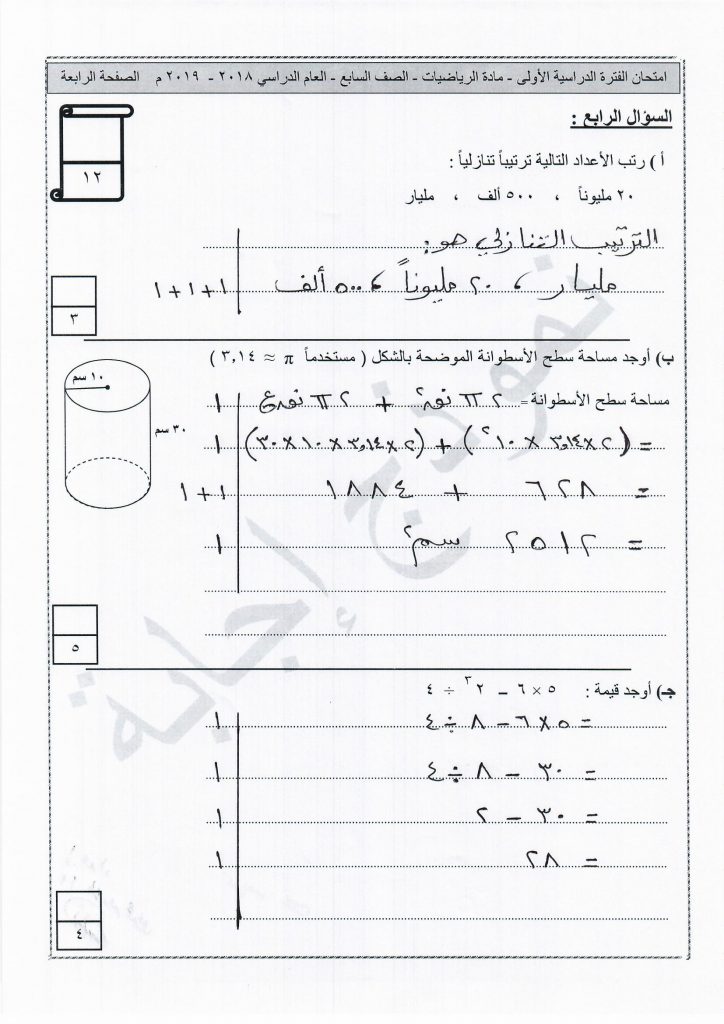 امتحان الفترة الدراسية الأولى - مادة الرياضيات - الصف السابع - العام الدراسي ٢٠١٨ - ٢٠١٩ م الصفحة الرابعة
السؤال الرابع :
١٢
أ ) رتب الأعداد التالية ترتيباً تنازلياً :
٢٠ مليوناً ، ٥٠٠ ألف ، مليار
الترتيب التنازلي هو :
مليار ، ٢٠ مليوناً ، ٥٠٠ ألف ١+١+١
٣
ب) أوجد مساحة سطح الأسطوانة الموضحة بالشكل ( مستخدماً π ≈ ٣,١٤ )
١٠ سم
٣٠ سم
مساحة سطح الأسطوانة = ٢ π نق٢ + ٢ π نق ع ١
= ( ٢ × ٣,١٤ × ١٠ ٢ ) + ( ٢ × ٣,١٤ × ١٠ × ٣٠ ) ١
= ٦٢٨ + ١٨٨٤ ١+١
= ٢٥١٢ سم٢ ١
٥
جـ) أوجد قيمة : ٥ × ٦ – ٢ ٣ ÷ ٤
= ٥ × ٦ – ٨ ÷ ٤ ١
= ٣٠ – ٨ ÷ ٤ ١
= ٣٠ – ٢ ١
= ٢٨ ١
٤
نموذج إجابة